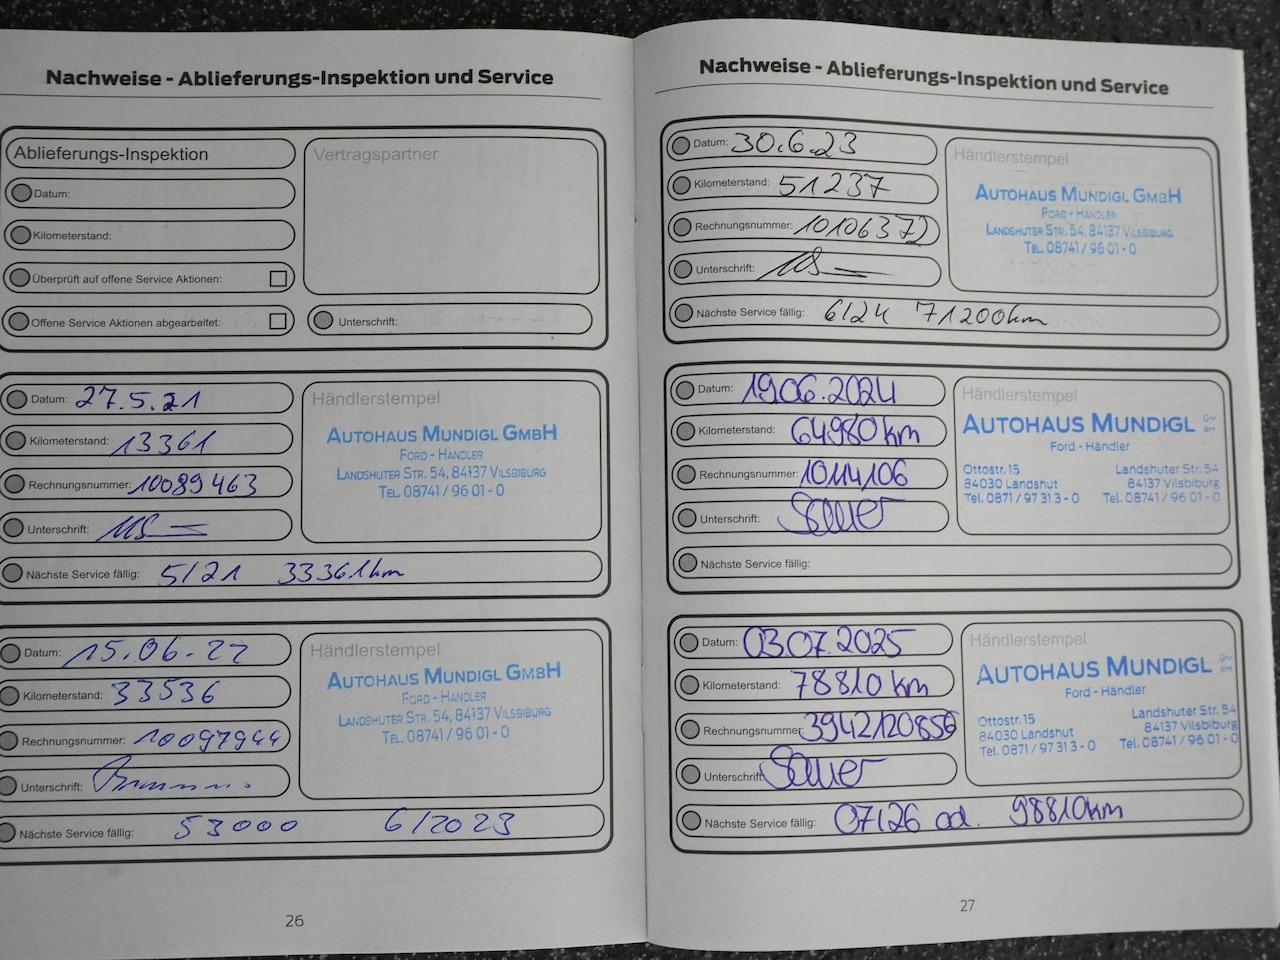 Nachweise - Ablieferungs-Inspektion und Service
Ablieferungs-Inspektion
Datum:
Kilometerstand:
Überprüft auf offene Service Aktionen:
Offene Service Aktionen abgearbeitet:
Vertragspartner
Unterschrift:
Datum: 27.5.21
Kilometerstand: 13361
Rechnungsnummer: 10089463
Unterschrift:
Händlerstempel
AUTOHAUS MUNDIGL GMBH
FORD - HÄNDLER
LANDSHUTER STR. 54, 84137 VILSBIBURG
TEL. 08741 / 96 01 - 0
Nächste Service fällig: 5/21 33361km
Datum: 15.06.22
Kilometerstand: 33536
Rechnungsnummer: 10097944
Unterschrift:
Händlerstempel
AUTOHAUS MUNDIGL GMBH
FORD - HÄNDLER
LANDSHUTER STR. 54, 84137 VILSBIBURG
TEL. 08741 / 96 01 - 0
Nächste Service fällig: 53000 6/2023
26
Nachweise - Ablieferungs-Inspektion und Service
Datum: 30.6.23
Kilometerstand: 51237
Rechnungsnummer: 10106372
Unterschrift:
Händlerstempel
AUTOHAUS MUNDIGL GMBH
FORD - HÄNDLER
LANDSHUTER STR. 54, 84137 VILSBIBURG
TEL. 08741 / 96 01 - 0
Nächste Service fällig: 6/24 71200km
Datum: 19.06.2024
Kilometerstand: 64980 km
Rechnungsnummer: 10114106
Unterschrift: Sauer
Händlerstempel
AUTOHAUS MUNDIGL GMBH
Ford - Händler
Ottostr. 15 Landshuter Str. 54
84030 Landshut 84137 Vilsbiburg
Tel. 0871 / 97 31 3 - 0 Tel. 08741 / 96 01 - 0
Nächste Service fällig:
Datum: 03.07.2025
Kilometerstand: 78810 km
Rechnungsnummer: 3942120856
Unterschrift: Sauer
Händlerstempel
AUTOHAUS MUNDIGL GMBH
Ford - Händler
Ottostr. 15 Landshuter Str. 54
84030 Landshut 84137 Vilsbiburg
Tel. 0871 / 97 31 3 - 0 Tel. 08741 / 96 01 - 0
Nächste Service fällig: 07/26 od. 98810km
27